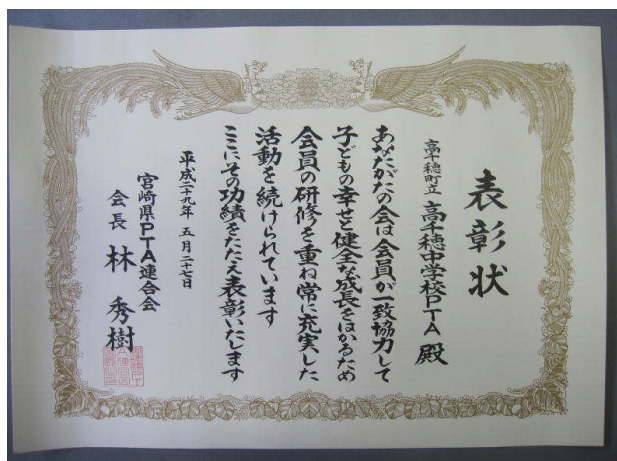 表彰状
高千穂町立 高千穂中学校PTA 殿
あなたがたの会は会員が一致協力して
子どもの幸せと健全な成長をはかるため
会員の研修を重ね常に充実した
活動を続けられています
ここにその功績をたたえ表彰いたします
平成二十九年 五月二十七日
宮崎県PTA連合会
会長 林 秀樹